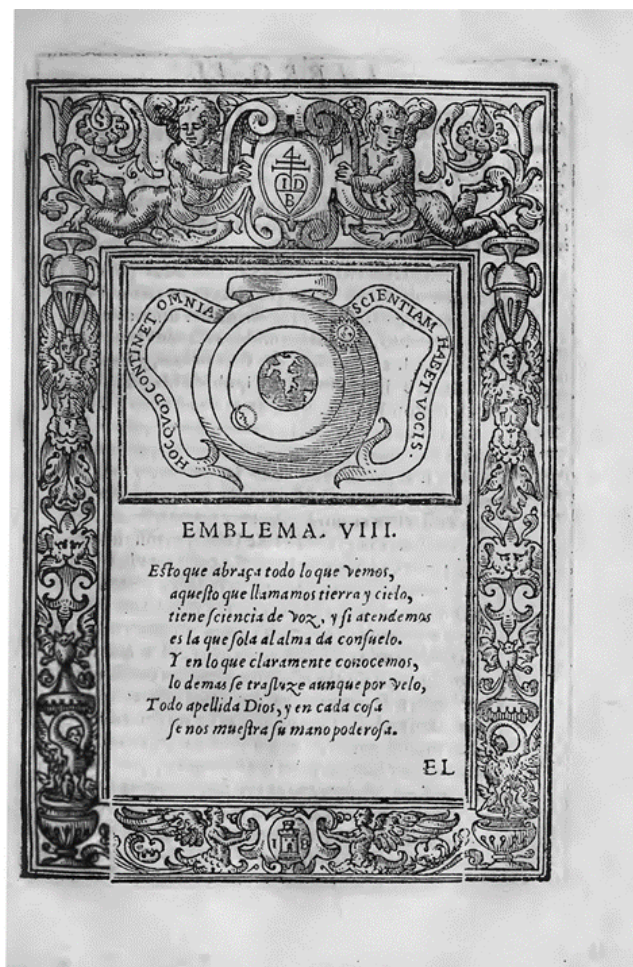 4
I D
B
HOC QVOD CONTINET OMNIA
SCIENTIAM HABET VOCIS
EMBLEMA. VIII.
Eſto que abraça todo lo que vemos,
aqueſto que llamamos tierra y cielo,
tiene ſciencia de voz, y ſi atendemos
es la que ſola al alma da conſuelo.
Y en lo que claramente conocemos,
lo demas ſe traſluze aunque por velo,
Todo apellida Dios, y en cada coſa
ſe nos mueſtra ſu mano poderoſa.
EL